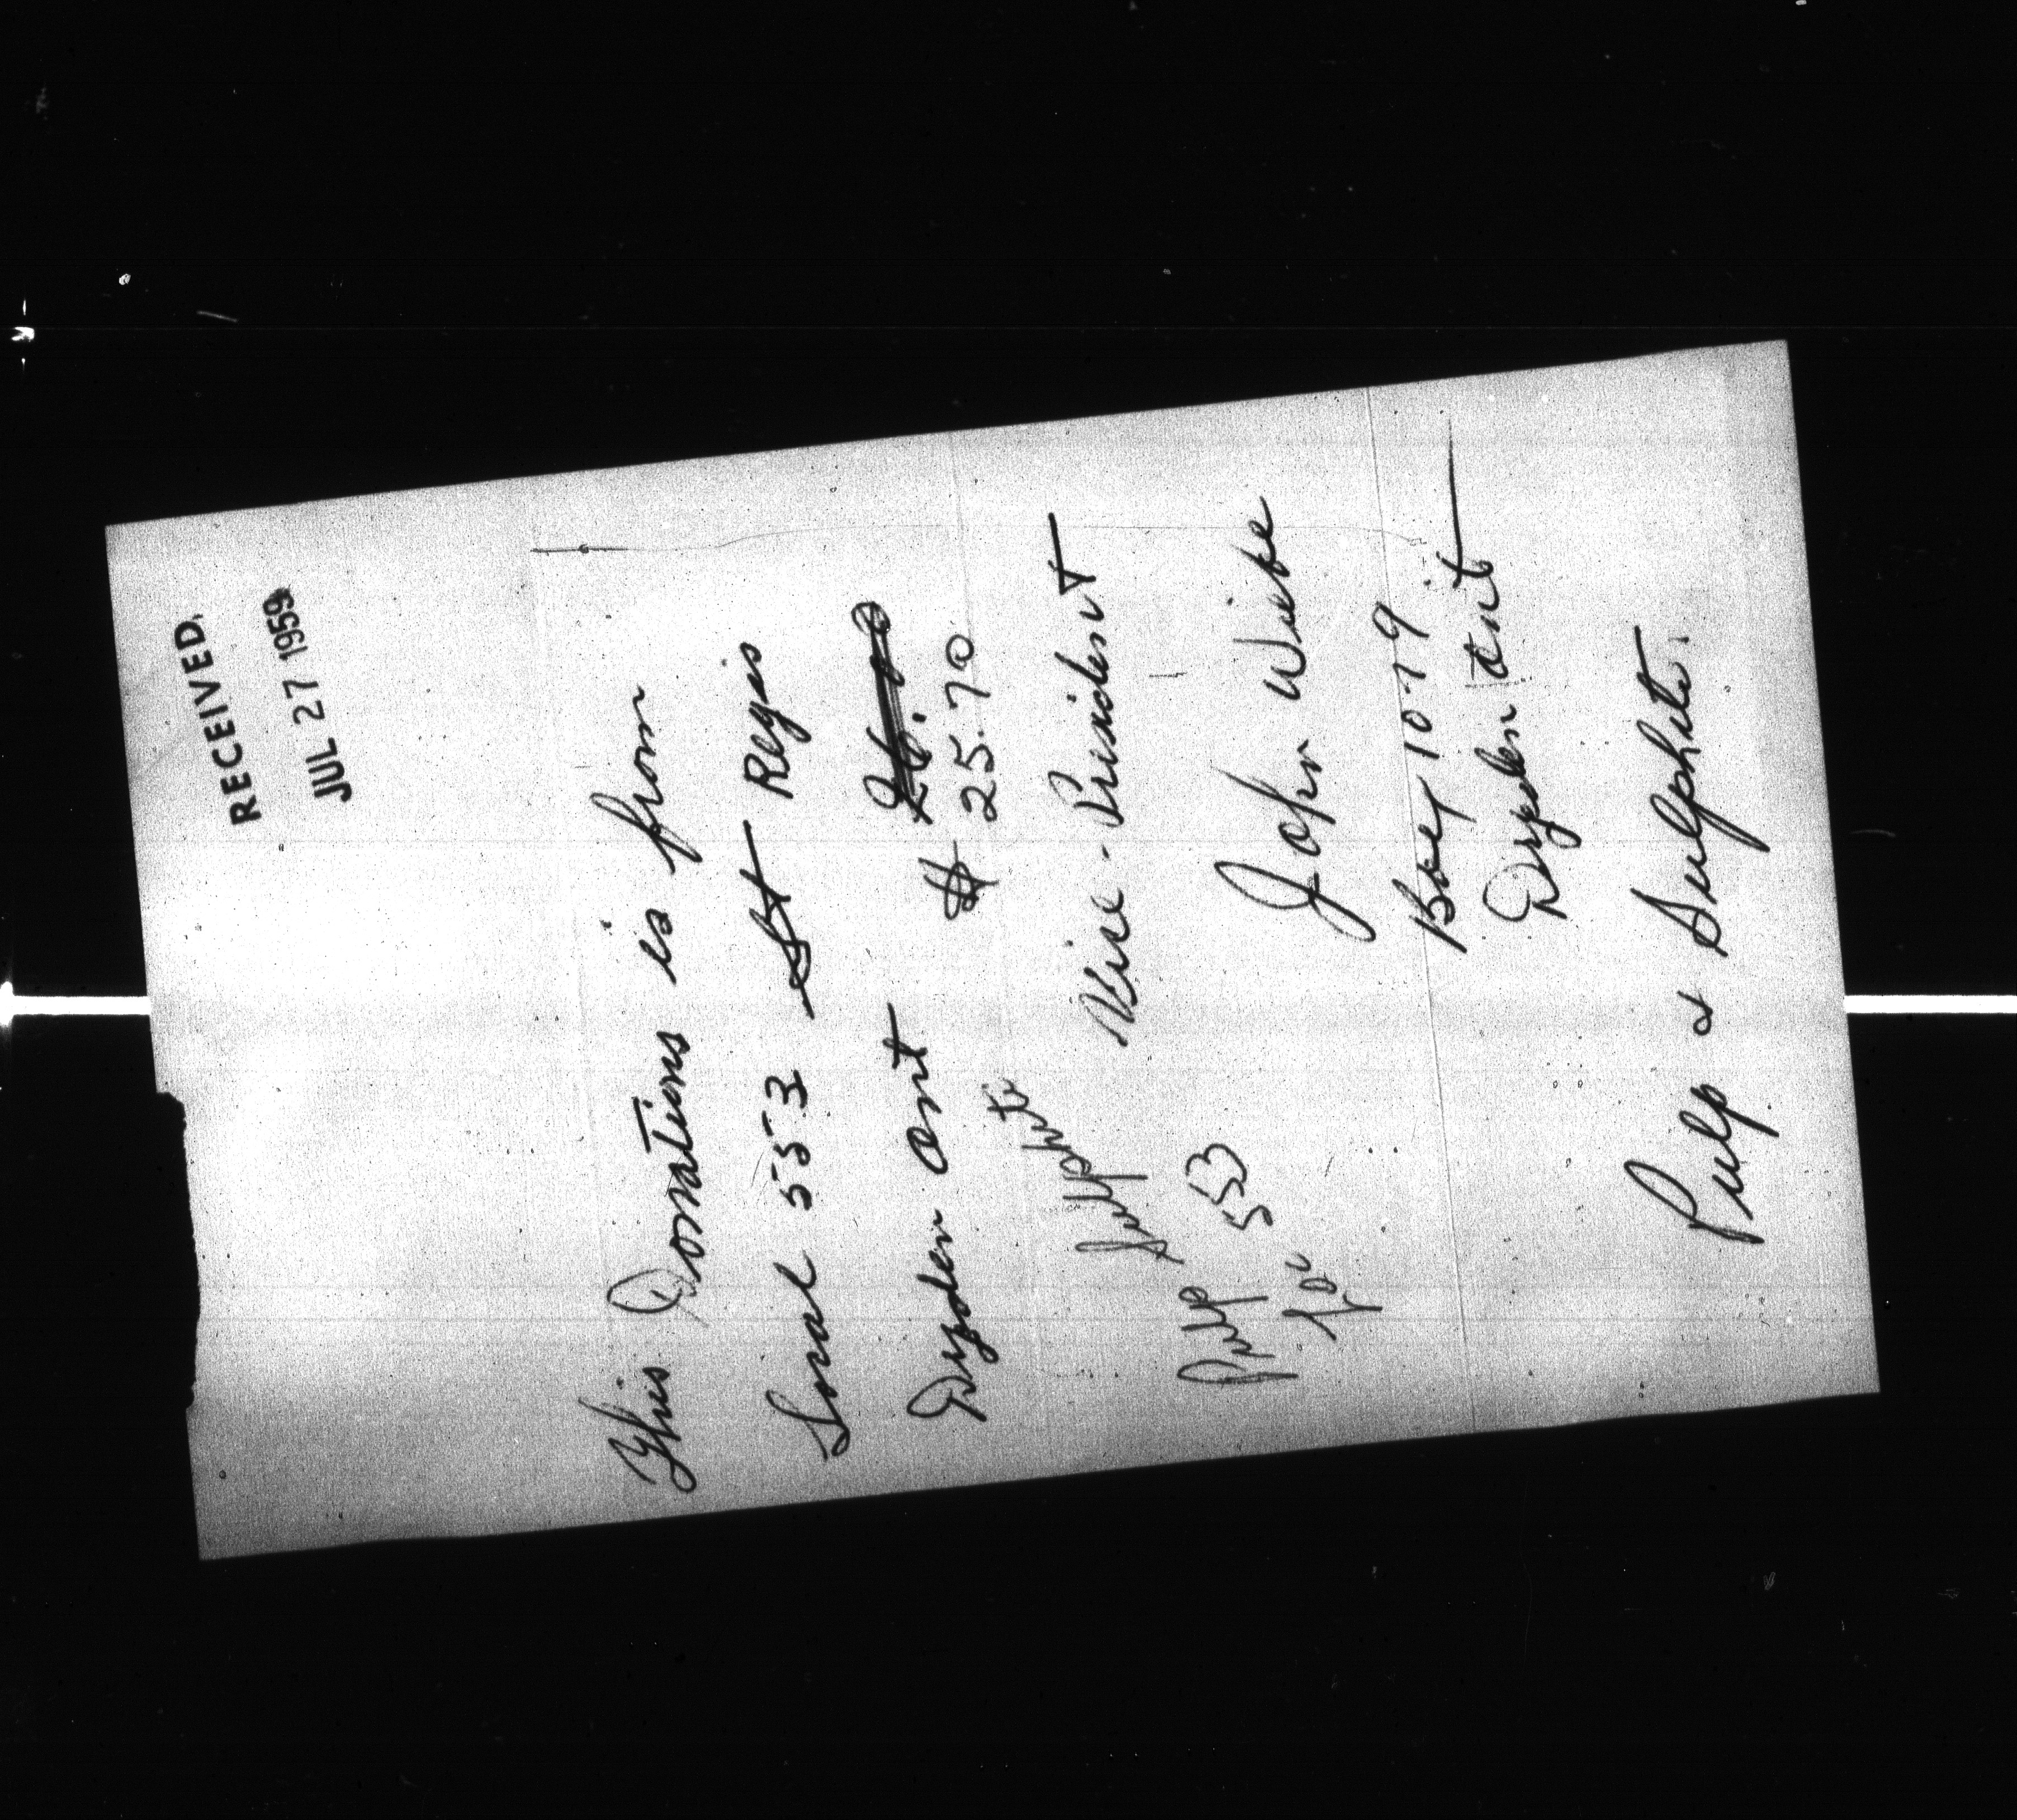 RECEIVED
JUL 27 1959
This Donations is from
Local 553 St Regis
Dryden Ont
$ 25.70
Vice-President
John Wiebe
Box 1079
Dryden Ont
Pulp Sulphite
Loc 553
Pulp & Sulphite.